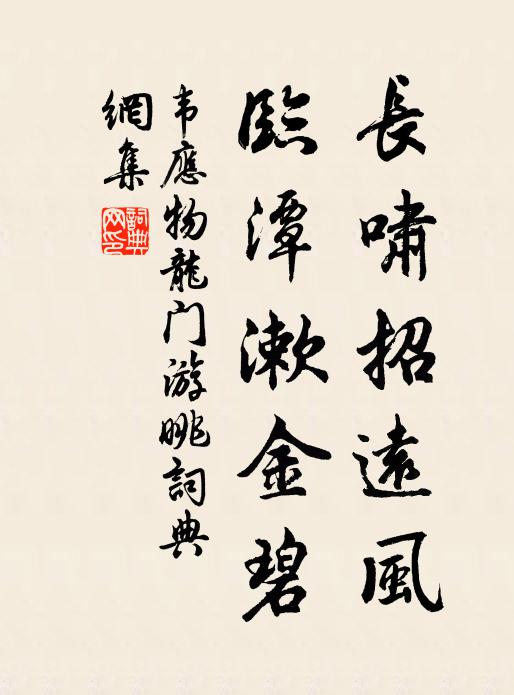 長嘯招遠風
臨潭漱金碧
韦應物龍门游眺詞典
網集
詞典网印